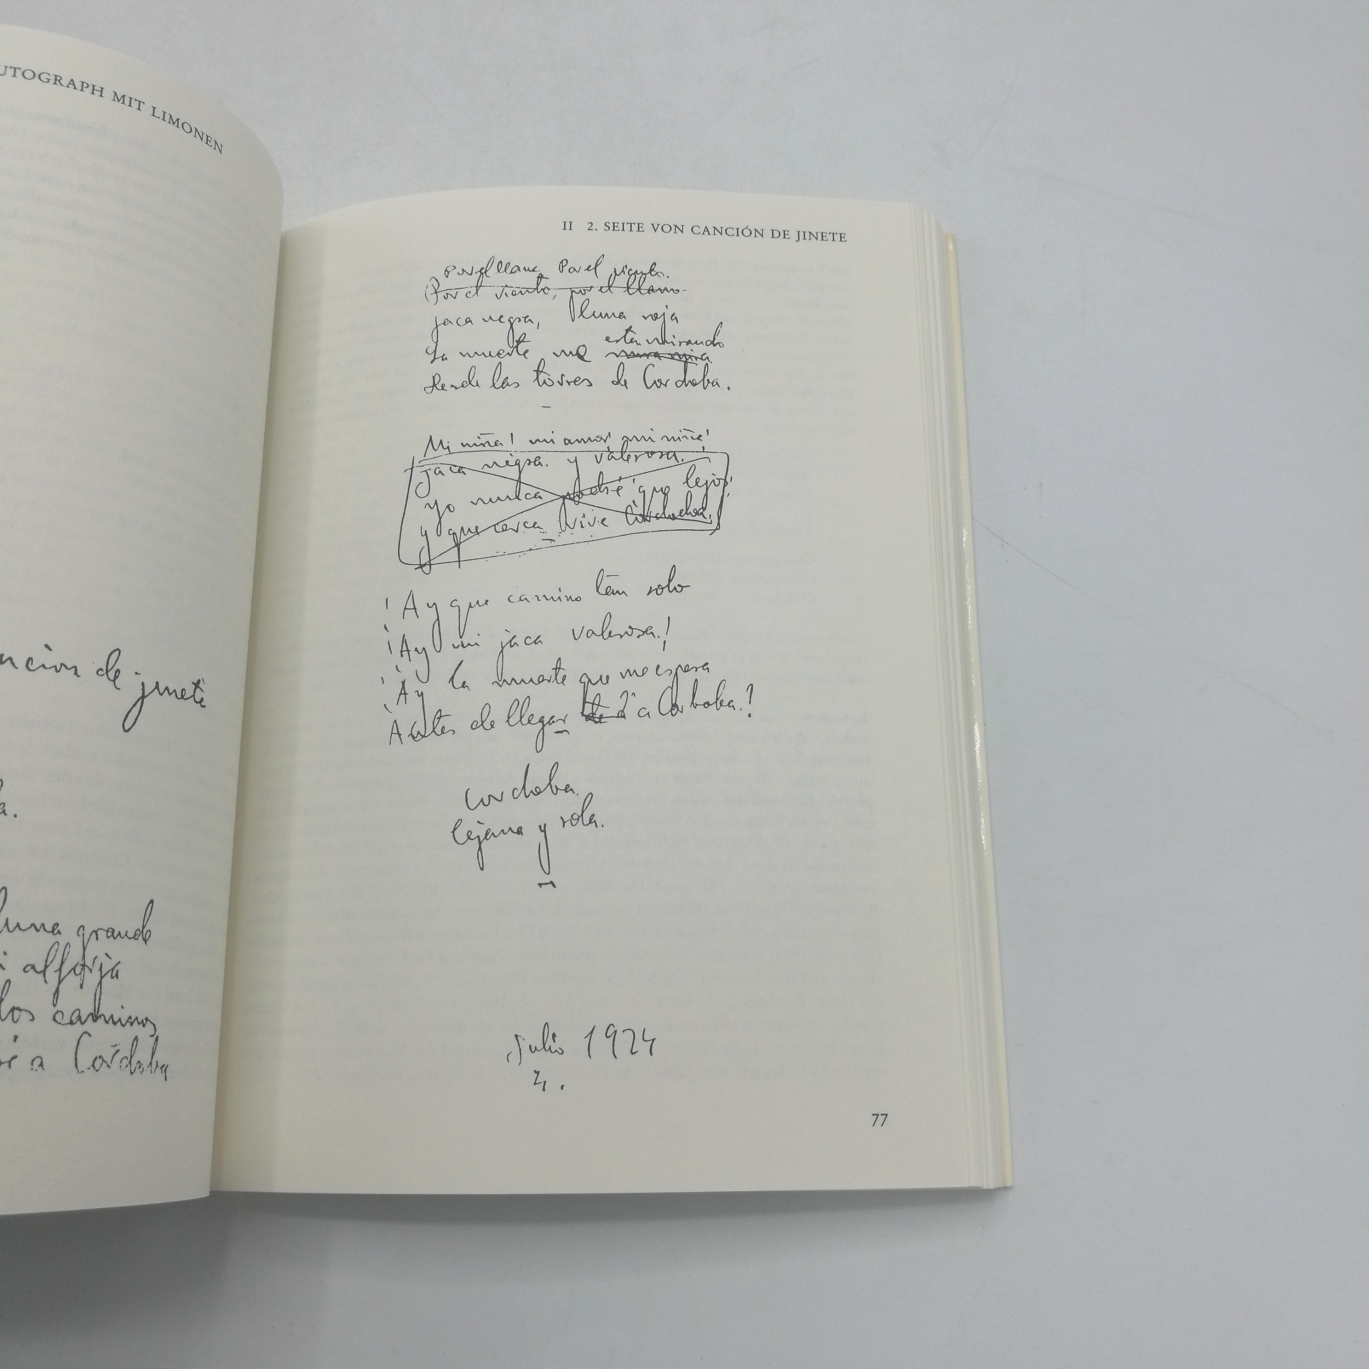 UTOGRAPH MIT LIMONEN
ncion de jinete
a.
luna grande
i alforja
los caminos
é a Cordoba
II 2. SEITE VON CANCIÓN DE JINETE
Por el llano, Por el viento.
Por el viento, por el llano
jaca negra, luna roja
La muerte me
esta mirando
mira
desde las torres de Cordoba.
Mi niña! mi amor! mi niña!
jaca negra. y valerosa.
yo nunca podré que lejos!
y que cerca vive Cordoba!
¡Ay que camino tan solo
¡Ay mi jaca valerosa!
¡Ay la muerte que me espera
Antes de llegar a Cordoba.!
Cordoba.
lejana y sola.
Julio 1924
4.
77